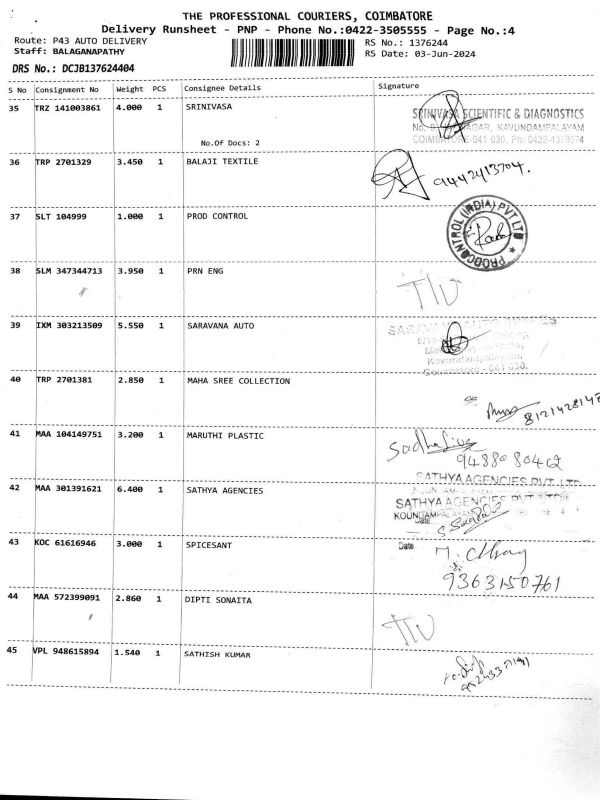 THE PROFESSIONAL COURIERS, COIMBATORE
Delivery Runsheet - PNP - Phone No.:0422-3505555 - Page No.:4
Route: P43 AUTO DELIVERY RS No.: 1376244
Staff: BALAGANAPATHY RS Date: 03-Jun-2024
DRS No.: DCJB137624404
S No Consignment No Weight PCS Consignee Details Signature
35 TRZ 141003861 4.000 1 SRINIVASA
SRINIVASA SCIENTIFIC & DIAGNOSTICS
NAGAR, KAVUNDAMPALAYAM
No.Of Docs: 2
COIMBATORE-641 030, Ph: 0422-4379374
36 TRP 2701329 3.450 1 BALAJI TEXTILE
9442413704.
37 SLT 104999 1.000 1 PROD CONTROL
PRODCONTROL (INDIA) PVT LTD
38 SLM 347344713 3.950 1 PRN ENG
39 IXM 303213509 5.550 1 SARAVANA AUTO
Kavundampalayam,
Coimbatore - 641 030.
40 TRP 2701381 2.850 1 MAHA SREE COLLECTION
41 MAA 104149751 3.200 1 MARUTHI PLASTIC
9488080462
42 MAA 301391621 6.400 1 SATHYA AGENCIES
SATHYA AGENCIES PVT LTD
SATHYA AGENCIES PVT
Date
43 KOC 61616946 3.000 1 SPICESANT
Date
9363150761
44 MAA 572399091 2.860 1 DIPTI SONAITA
45 VPL 948615894 1.540 1 SATHISH KUMAR